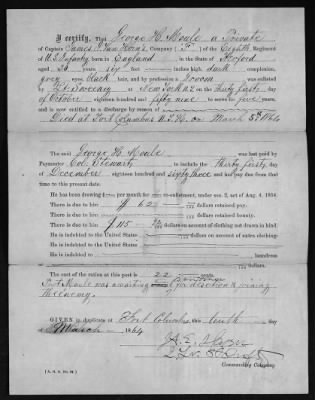 I certify, that George H. Moule a Private
of Captain James J. Van Horn's Company ("F") of the Eighth Regiment
of U.S. Infantry born in England in the State of Hereford
aged 24 years feet inches high, dark complexion,
grey eyes, black hair, and by profession a Groom was enlisted
by Lt. Sweeney at New York N.Y. on the thirty first day
of October eighteen hundred and fifty nine to serve five years,
and is now entitled to a discharge by reason of
Died at Fort Columbus N.Y.H. on March 5th 1864
The said George H. Moule was last paid by
Paymaster Col. Stewart to include the thirty first day of
December eighteen hundred and sixty three and has pay due from that
time to the present date.
He has been drawing per month for re-enlistment, under sec. 2, act of Aug. 4, 1854.
There is due to him dollars retained pay.
There is due to him dollars retained bounty.
There is due to him dollars on account of clothing not drawn in kind.
He is indebted to the United States dollars on account of extra clothing
He is indebted to the United States
He is indebted to
at dollars.
The cost of the ration at this post is 22 cents.
Pvt. Moule was awaiting for desertion & joining
the enemy.
GIVEN in duplicate at Fort Columbus this tenth day
of March 1864
Commanding Company